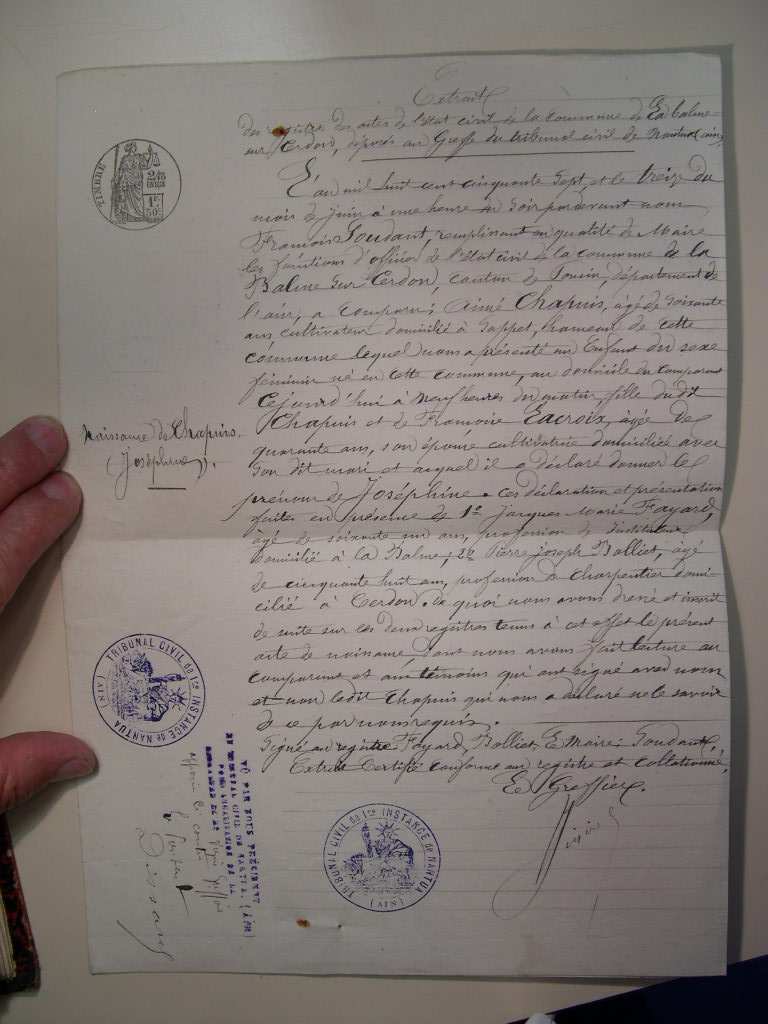 Extrait
des registres des actes de l'état civil de la commune de La Balme-
sur Cerdon, déposés au Greffe du tribunal civil de Nantua (ain)
L'an mil huit cent cinquante sept, et le treize du
mois de juin à une heure du soir pardevant nous
François Goudant, remplissant en qualité de Maire
les fonctions d'officier de l'état civil de la commune de la
Balme sur Cerdon, canton de Poncin, département de
l'ain, a comparu; Aimé Chapuis, âgé de soixante
ans cultivateur domicilié à hameau de cette
commune lequel nous a présenté un Enfant du sexe
féminin né en cette commune, au domicile du comparant
Cejourd'hui à neuf heures du matin, fille du dit
Chapuis et de Françoise Lacroix, âgée de
quarante ans, son épouse cultivatrice domiciliée avec
Son dit mari et auquel il a déclaré donner le
prénom de Joséphine. Ces déclaration et présentation
faites en présence de 1º Jacques Marie Fayard,
âgé de soixante un ans, profession de instituteur
domicilié à La Balme, 2º Pierre Joseph Bolliet, âgé
de cinquante huit ans, profession de charpentier domi-
cilié à Cerdon. De quoi nous avons dressé et inscrit
de suite sur les deux registres tenus à cet effet le présent
acte de naissance, dont nous avons fait lecture au
comparant et aux témoins qui ont signé avec nous
et non ledit Chapuis qui nous a déclaré ne le savoir
de ce par nous requis.
Signé au registre Fayard, Bolliet, Le Maire: Goudant,
Extrait Certifié conforme au registre et collationné,
Le Greffier.
Naissance de Chapuis
(Joséphine).
TIMBRE
2/10
EN SUS
1F
50c
TRIBUNAL CIVIL de 1re INSTANCE de NANTUA
(AIN)
VU PAR NOUS PRÉSIDENT
DU TRIBUNAL CIVIL DE NANTUA (AIN)
POUR LÉGALISATION DE LA
SIGNATURE DE Mr
apposée ci contre
TRIBUNAL CIVIL de 1re INSTANCE de NANTUA
(AIN)